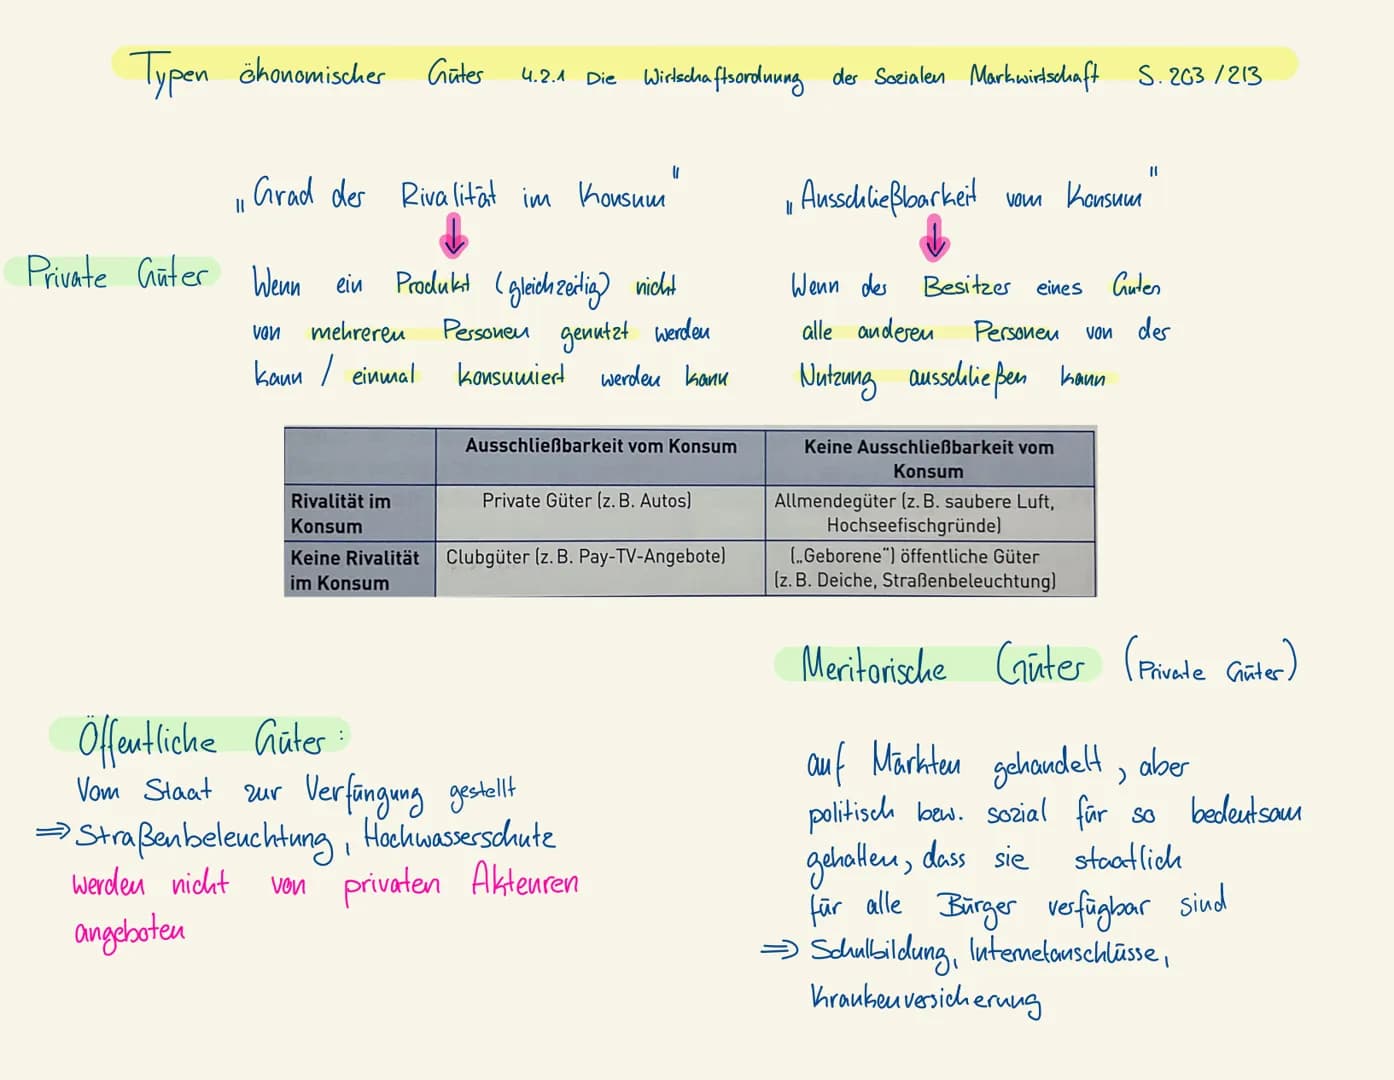 Typen ökonomischer Güter 4.2.1 Die Wirtschaftsordnung der Sozialen Marktwirtschaft S. 203 / 213
„Grad der Rivalität im Konsum"
„Ausschließbarkeit vom Konsum"
Private Güter
Wenn ein Produkt (gleichzeitig) nicht
von mehreren Personen genutzt werden
kann / einmal konsumiert werden kann
Wenn der Besitzer eines Guten
alle anderen Personen von der
Nutzung ausschließen kann
Ausschließbarkeit vom Konsum
Keine Ausschließbarkeit vom
Konsum
Rivalität im
Konsum
Private Güter (z. B. Autos)
Allmendegüter (z. B. saubere Luft,
Hochseefischgründe)
Keine Rivalität
im Konsum
Clubgüter (z. B. Pay-TV-Angebote)
(„Geborene") öffentliche Güter
(z. B. Deiche, Straßenbeleuchtung)
Öffentliche Güter:
Vom Staat zur Verfüngung gestellt
⇒ Straßenbeleuchtung, Hochwasserschutz
werden nicht von privaten Akteuren
angeboten
Meritorische Güter (Private Güter)
auf Märkten gehandelt, aber
politisch bzw. sozial für so bedeutsam
gehalten, dass sie staatlich
für alle Bürger verfügbar sind
⇒ Schulbildung, Internetanschlüsse,
Krankenversicherung